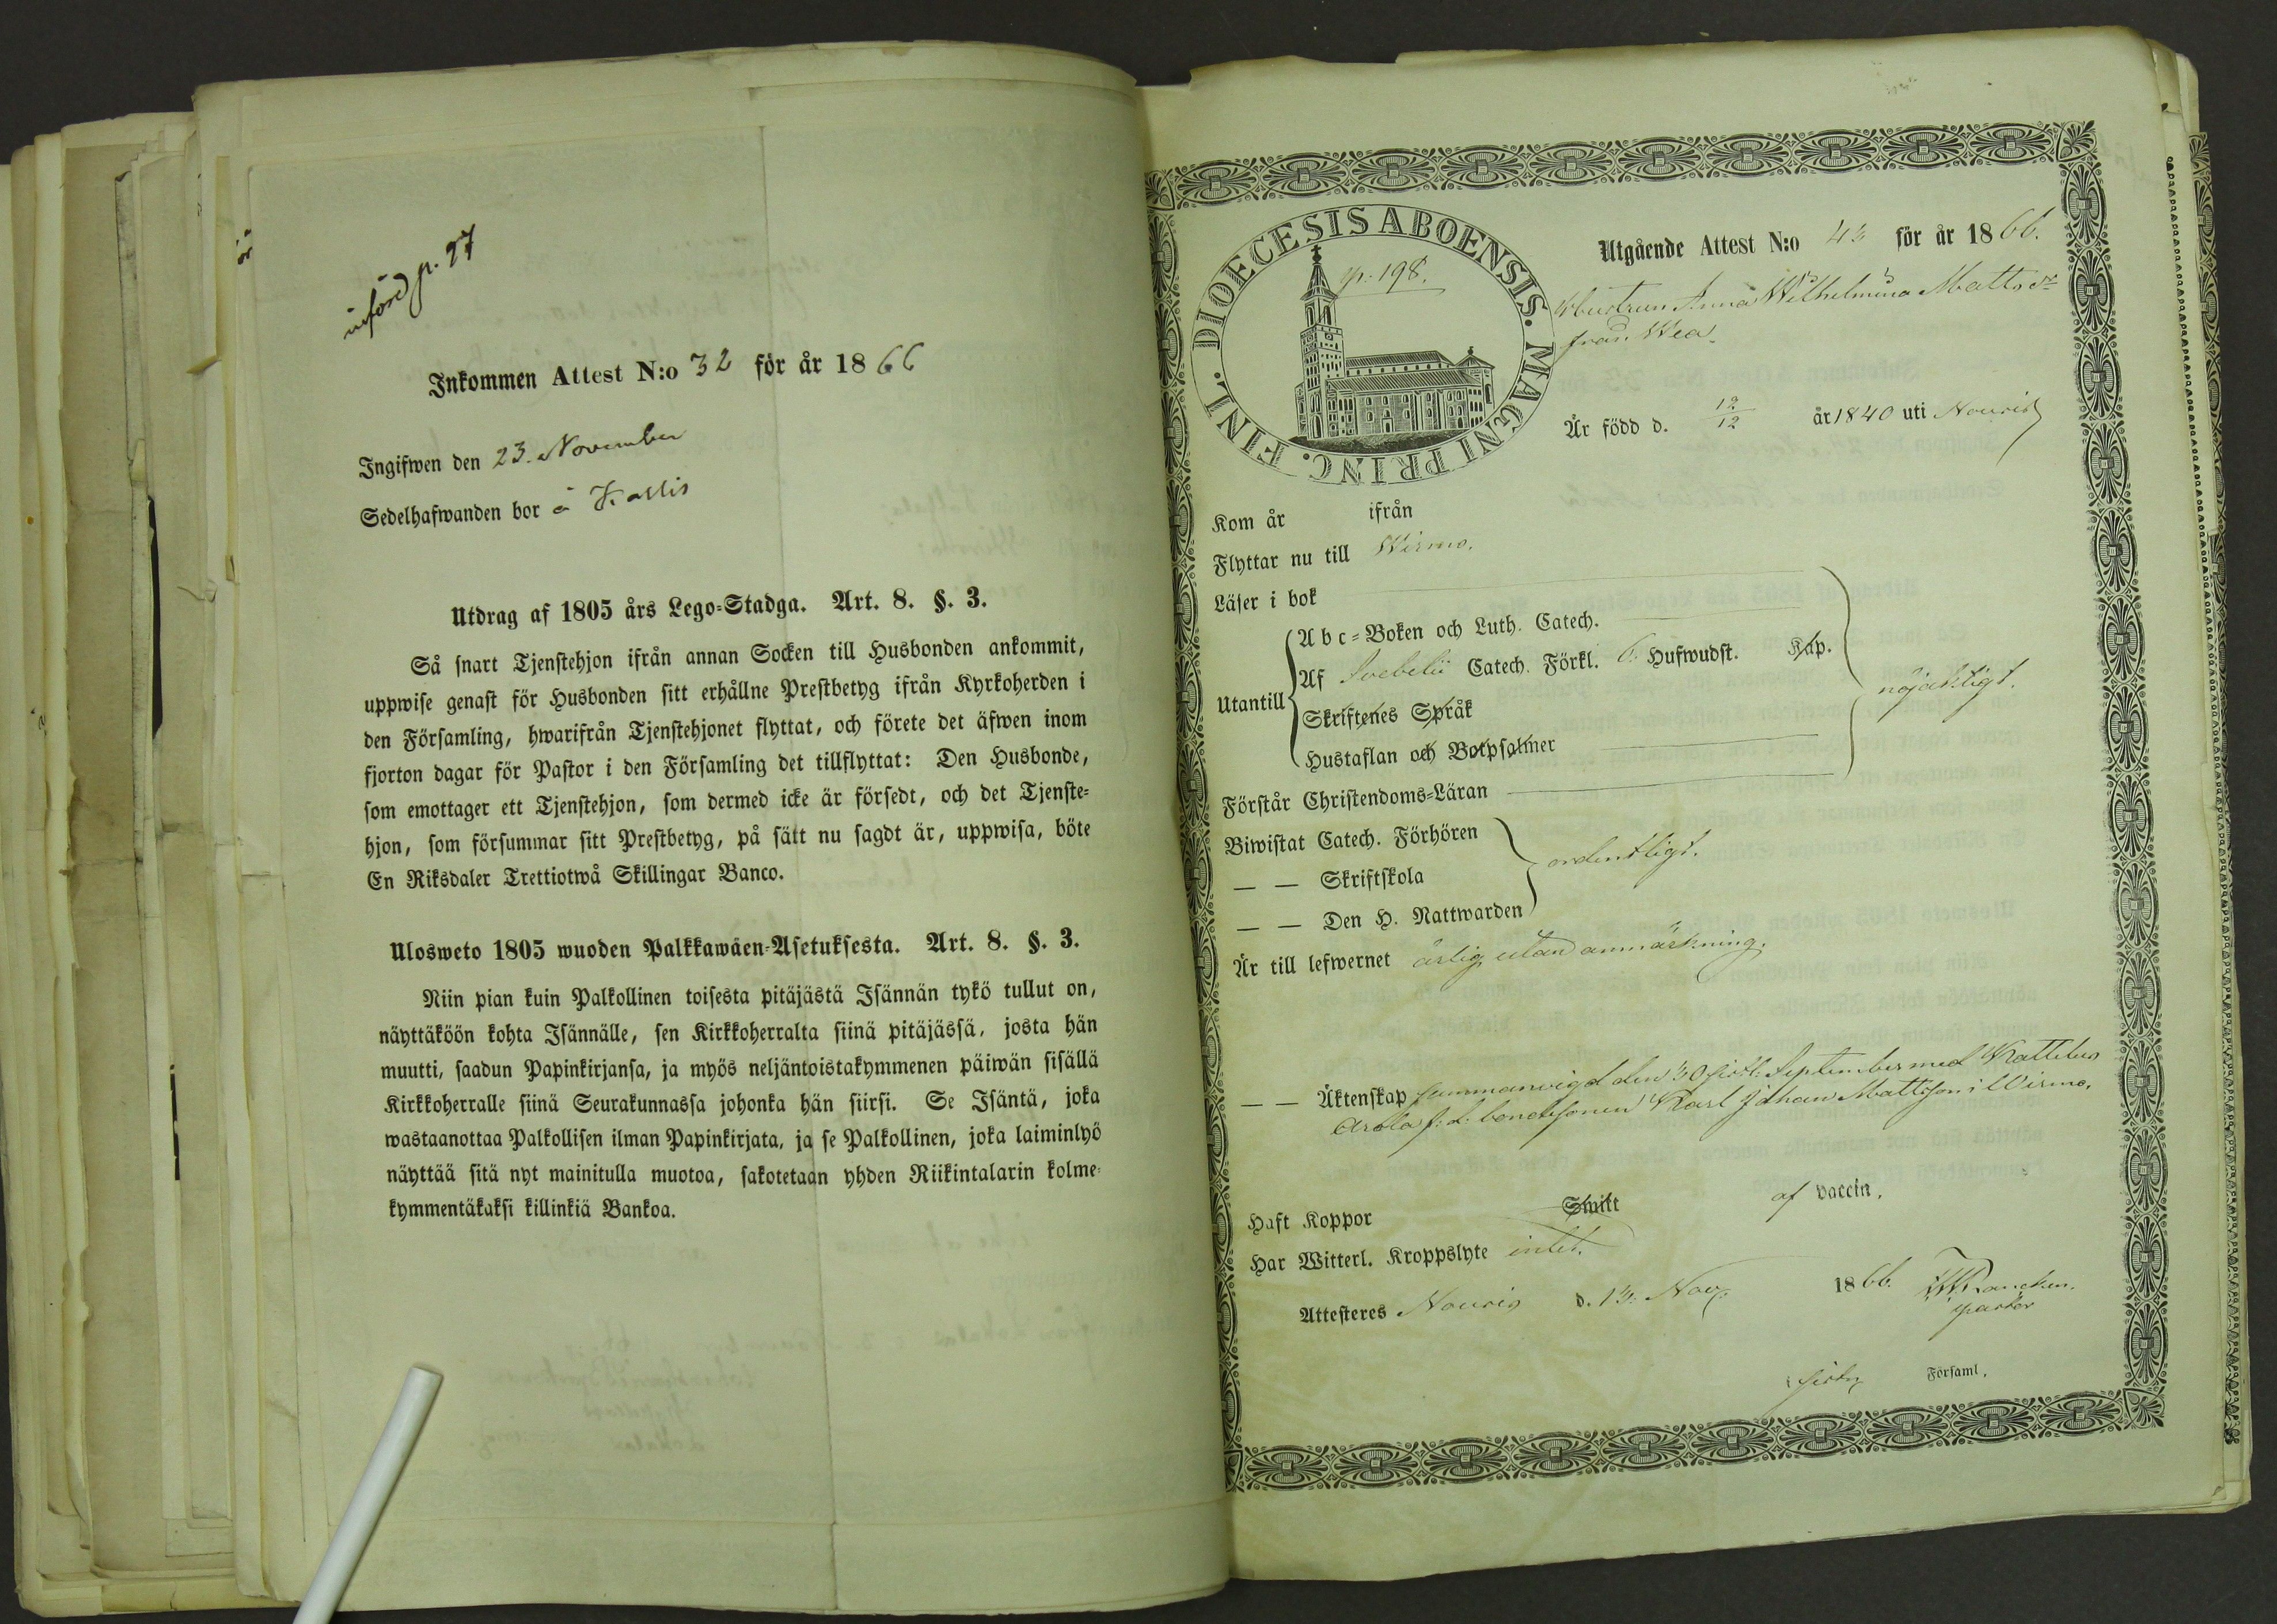 införd p. 27
Inkommen Attest N:o 32 för år 1866
Ingifwen den 23. November
Sedelhafwanden bor å Kallis
Utdrag af 1805 års Lego-Stadga. Art. 8. §. 3.
Så snart Tjenstehjon ifrån annan Socken till Husbonden ankommit,
uppwise genast för Husbonden sitt erhållne Prestbetyg ifrån Kyrkoherden i
den Församling, hwarifrån Tjenstehjonet flyttat, och förete det äfwen inom
fjorton dagar för Pastor i den Församling det tillflyttat: Den Husbonde,
som emottager ett Tjenstehjon, som dermed icke är försedt, och det Tjenste-
hjon, som försummar sitt Prestbetyg, på sätt nu sagdt är, uppwisa, böte
En Riksdaler Trettiotwå Skillingar Banco.
Ulosweto 1805 wuoden Palkkawäen-Asetuksesta. Art. 8. §. 3.
Niin pian kuin Palkollinen toisesta pitäjästä Isännän tykö tullut on,
näyttäköön kohta Isännälle, sen Kirkkoherralta siinä pitäjässä, josta hän
muutti, saadun Papinkirjansa, ja myös neljäntoistakymmenen päiwän sisällä
Kirkkoherralle siinä Seurakunnassa johonka hän siirsi. Se Isäntä, joka
wastaanottaa Palkollisen ilman Papinkirjata, ja se Palkollinen, joka laiminlyö
näyttää sitä nyt mainitulla muotoa, sakotetaan yhden Riikintalarin kolme-
kymmentäkaksi killinkiä Bankoa.
DIOECESIS ABOENSIS. MAGNI PRINC. FINL.
p. 198.
Utgående Attest N:o 43 för år 1866.
Hustrun Anna Wilhelmina Mattsdr
från Wea.
Är född d. 12/12 år 1840 uti Nousis
Kom år ifrån
Flyttar nu till Wirmo.
Läser i bok
Utantill
Abc-Boken och Luth. Catech.
Af Svebelii Catech. Förkl. 6. Hufwudst. Kap.
Skriftenes Språk
Hustaflan och Botpsalmer
nöjaktigt.
Förstår Christendoms-Läran
Biwistat Catech. Förhören
— — Skriftskola
— — Den H. Nattwarden
ordentligt.
Är till lefwernet ärlig utan anmärkning.
— — Äktenskap sammanvigd den 30 sistl. September med Kattelus
Arola f. d. bondesonen Karl Johan Mattsson i Wirmo.
Haft Koppor Smitt af vaccin.
Har Witterl. Kroppslyte intet.
Attesteres Nousis d. 13. Nov. 1866.
pastor
Församl.